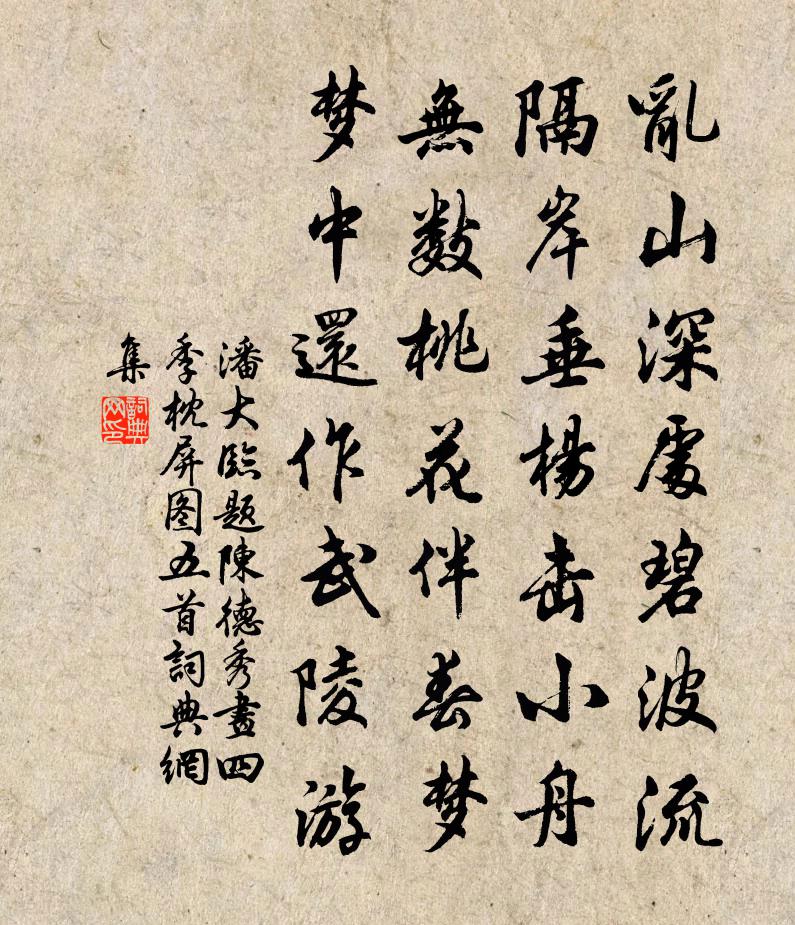 亂山深處碧波流
隔岸垂楊出小舟
無數桃花伴春梦
梦中還作武陵游
潘大臨題陳德秀畫四
季枕屏图五首詞典網
集
詞典网印